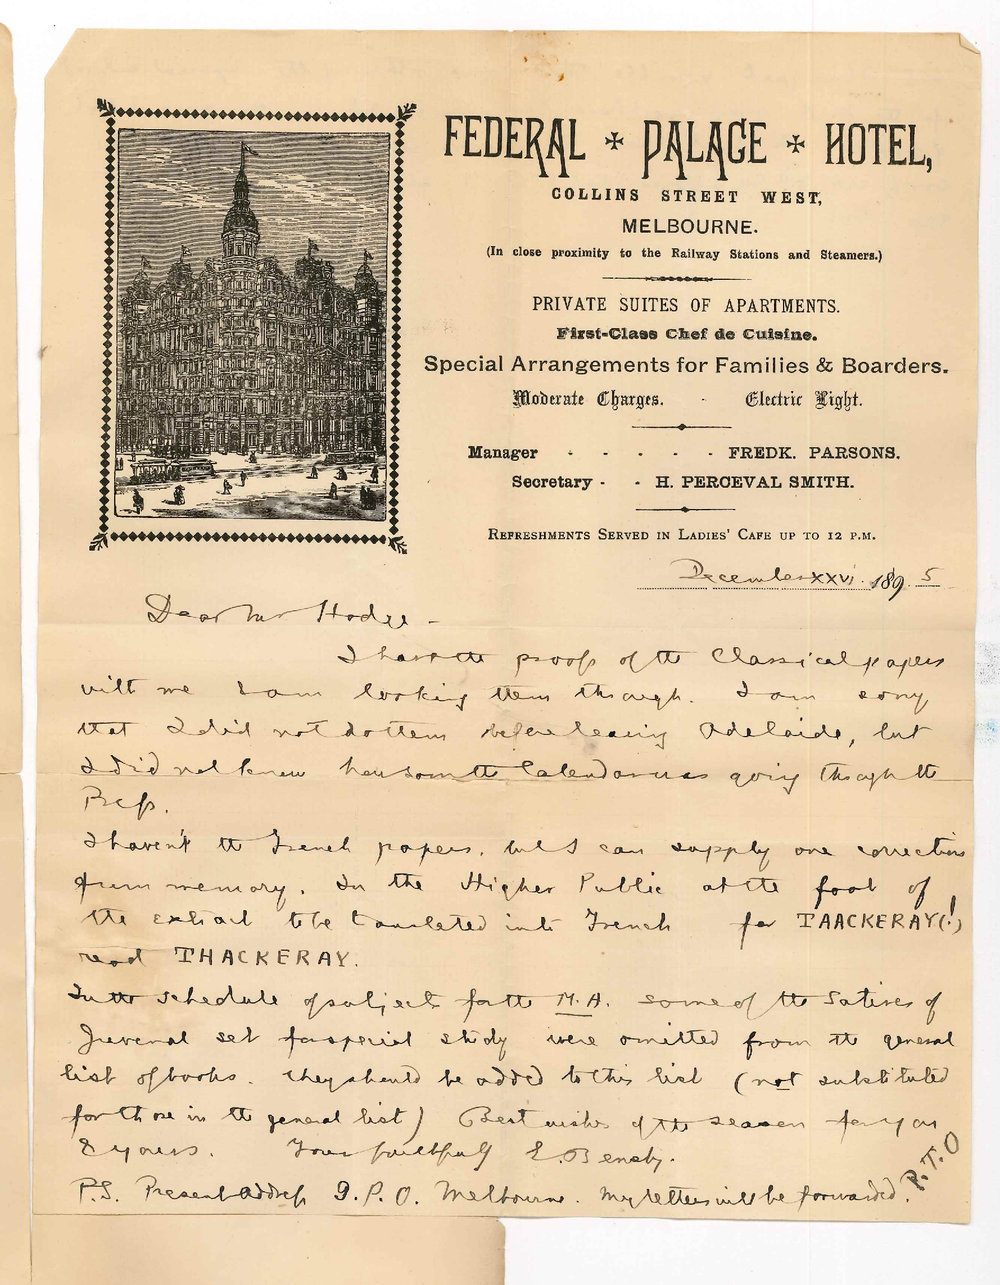 FEDERAL PALACE HOTEL,
COLLINS STREET WEST,
MELBOURNE.
(In close proximity to the Railway Stations and Steamers.)
PRIVATE SUITES OF APARTMENTS.
First-Class Chef de Cuisine.
Special Arrangements for Families & Boarders.
Moderate Charges. - Electric Light.
Manager - - - - - FREDK. PARSONS.
Secretary - - H. PERCEVAL SMITH.
REFRESHMENTS SERVED IN LADIES' CAFE UP TO 12 P.M.
December XXVI. 1895
Dear Mr Hodge -
I have the proofs of the Classical papers
with me & am looking them through. I am sorry
that I did not do them before leaving Adelaide, but
I did not know how soon the Calendar was going through the
Press.
I haven't the French papers, but I can supply one correction
from memory. In the Higher Public at the foot of
the extract to be translated into French for TAACKERAY(!)
read THACKERAY.
In the schedule of subjects for the M.A. some of the Satires of
Juvenal set for special study were omitted from the general
list of books. They should be added to this list (not substituted
for those in the general list) Best wishes of the season for you
& yours. Yours faithfully E. Bensly.
P.S. Present address G.P.O. Melbourne. My letters will be forwarded.
P.T.O